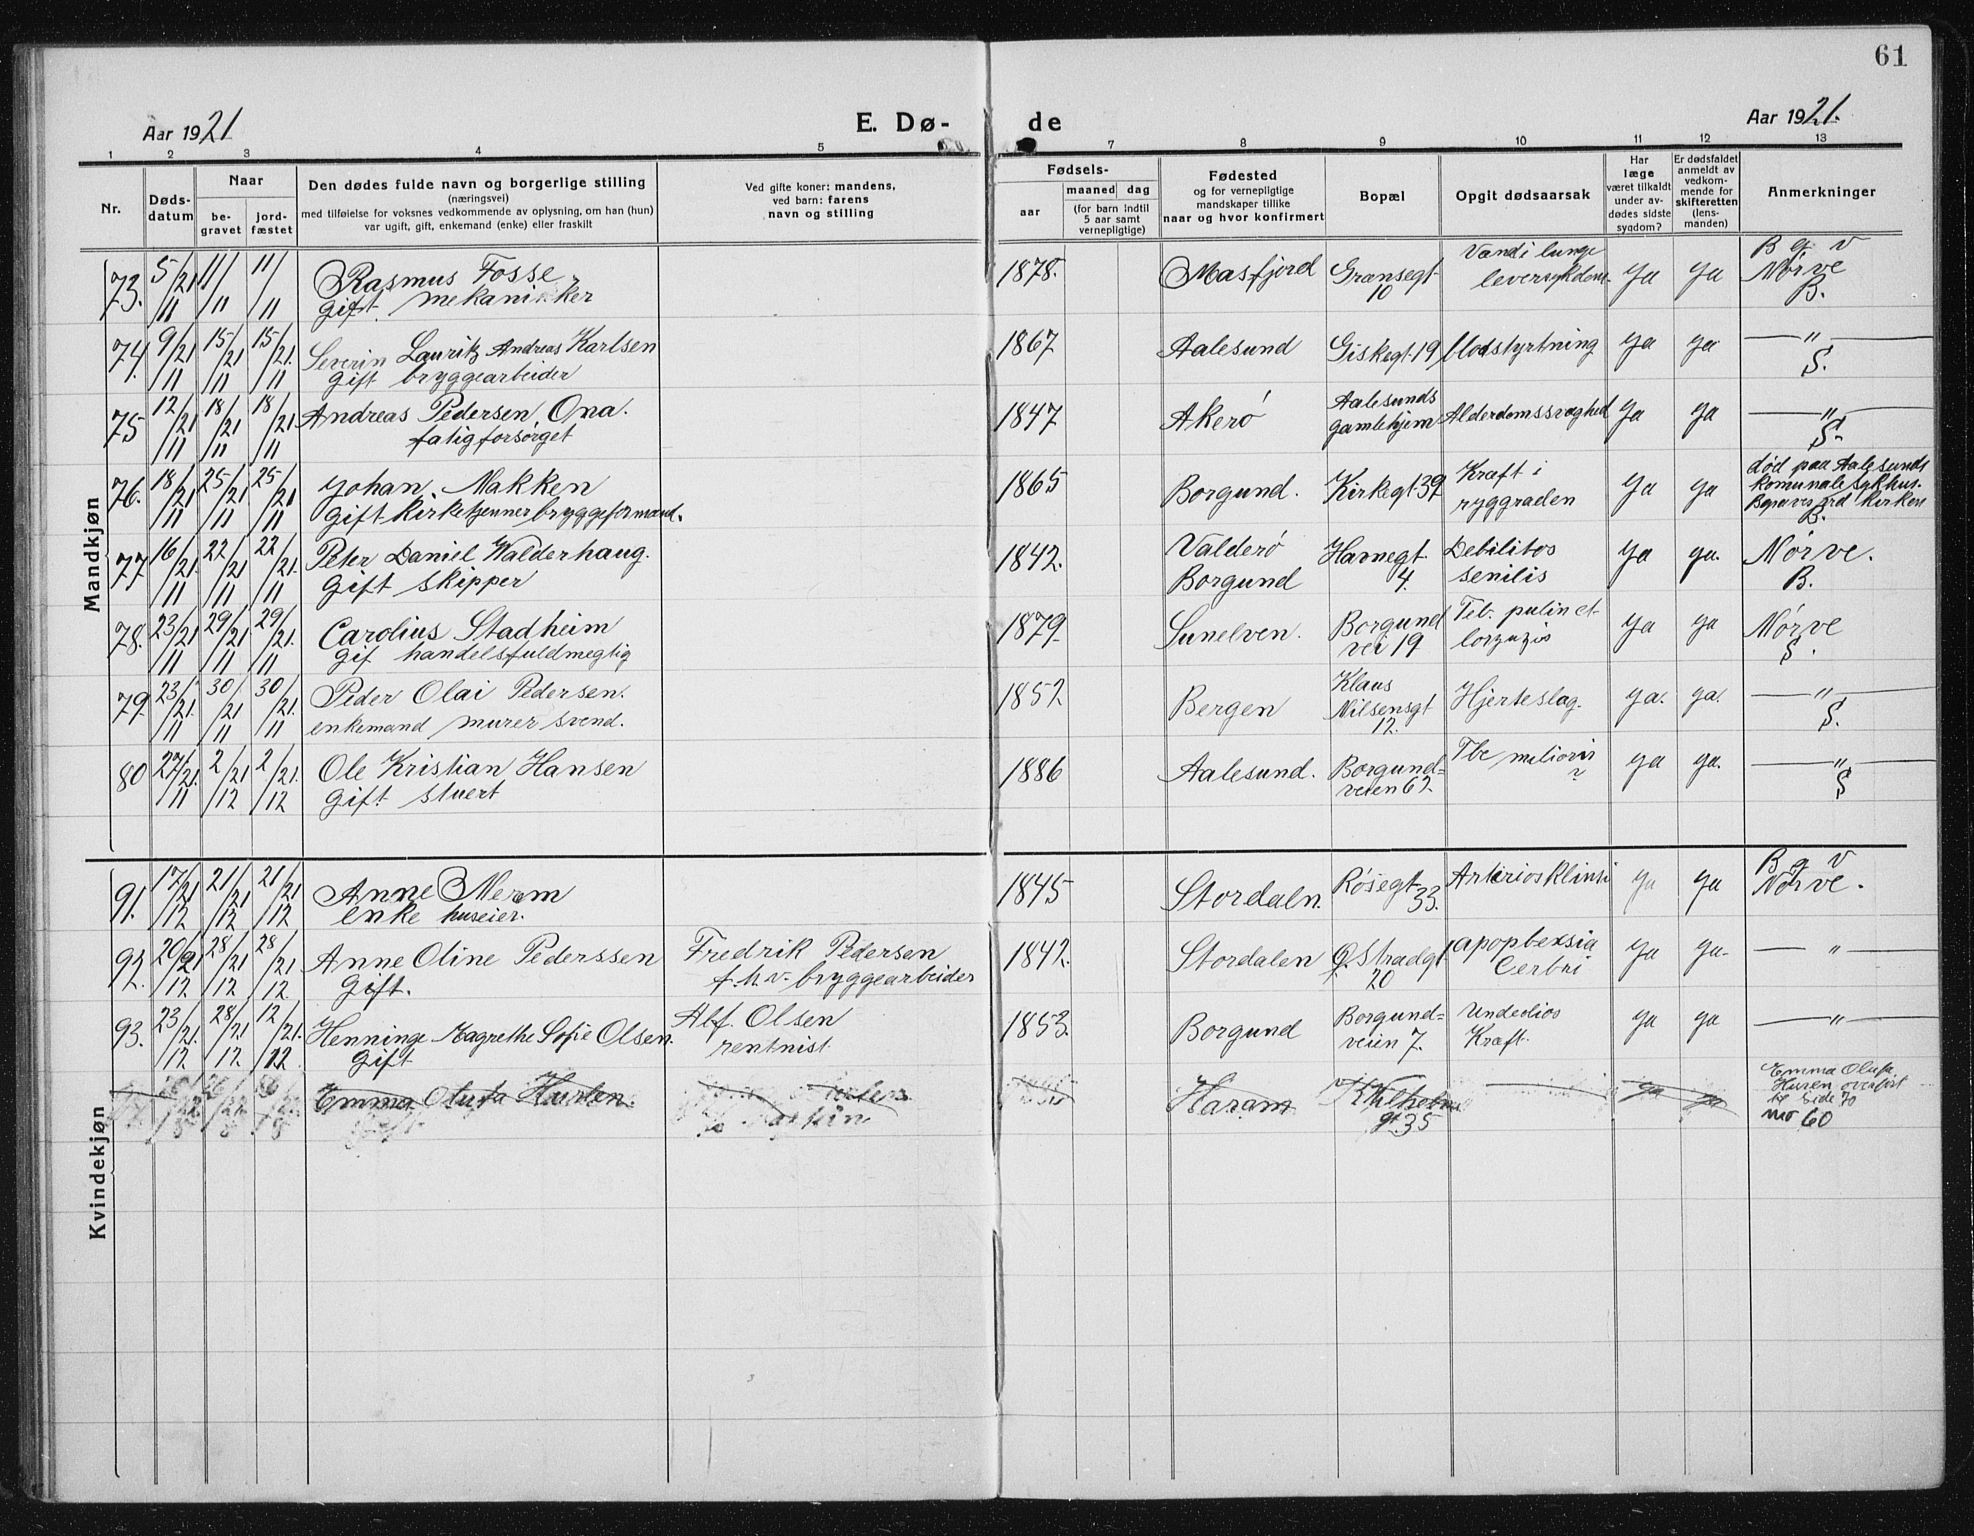 61
Aar 1921
E. Dø-
de
Aar 1921.
1 2 3 4 5 7 8 9 10 11 12 13
Nr.
Døds-
datum
Naar
be-
gravet
jord-
fæstet
Den dødes fulde navn og borgerlige stilling
(næringsvei)
med tilføielse for voksnes vedkommende av oplysning, om han (hun)
var ugift, gift, enkemand (enke) eller fraskilt
Ved gifte koner: mandens,
ved barn: farens
navn og stilling
Fødsels-
aar
maaned dag
(for barn indtil
5 aar samt
vernepligtige)
Fødested
og for vernepligtige
mandskaper tillike
naar og hvor konfirmert
Bopæl
Opgit dødsaarsak
Har
læge
været tilkaldt
under av-
dødes sidste
sygdom?
Er dødsfaldet
anmeldt av
vedkom-
mende for
skifteretten
(lens-
manden)
Anmerkninger
Mandkjøn
73. 5/11 21 11/11 11/11 Rasmus Fosse
gift. mekanikker
1878. Masfjord Grænsegt. 10 Vand i lunge
leversykdom. Ja Ja B g V
Nørve
B.
74. 9/11 21 15/11 21 15/11 21. Severin Lauritz Andreas Karlsen
gift bryggearbeider
1867 Aalesund Giskegt. 19 blodstyrtning Ja Ja —"—
S.
75 12/11 21 18/11 21 18/11 21 Andreas Pedersen Ona.
fatigforsørget
1847 Akerø Aalesunds
gamlehjem Alderdomssvaghed Ja Ja —"—
S.
76. 18/11 21 25/11 21 25/11 21 Johan Nakken
gift kirketjenner bryggeformand.
1865 Borgund. Kirkegt. 39 Kræft i
ryggraden Ja Ja død paa Aalesunds
komunale sykhus.
B.
77 16/11 21 22/11 21 22/11 21. Peter Daniel Walderhaug.
gift skipper
1842. Valderø
Borgund Havnegt
4. Debilitos
senilis Ja Ja. Nørve.
B.
78. 23/11 21 29/11 21 29/11 21. Carolius Stadheim
gif handelsfuldmegtig
1879. Sunelven. Borgund
vei 19 Ja Ja Nørve
S.
79. 23/11 21. 30/11 21 30/11 21. Peder Olai Pedersen.
enkemand murer svend.
1852 Bergen Klaus
Nilsensgt
12. Hjerteslag. Ja. Ja. —"—
S.
80 27/11 21. 2/12 21 2/12 21. Ole Kristian Hansen
gift stuert
1886 Aalesund. Borgund=
veien 62. Tbe miliaris Ja Ja. —"—
S
Kvindekjøn
91. 17/12 21 21/12 21 21/12 21 Anne Merem
enke huseier.
1845 Stordaln. Røsegt
33. Artirios klinsi Ja Ja B g V
Nørve.
92. 20/12 21 28/12 21 28/12 21 Anne Oline Pederssen
Gift.
Fredrik Pedersen
f.h.v. bryggearbeider
1842. Stordalen Ø. Strædgt
20 apopbexsia
Cerbri Ja Ja — "
93. 23/12 21. 28/12 21 12/12 21. Henninge Magrethe Sofie Olsen.
Gift
Alf. Olsen
rentnist
1853. Borgund Borgund=
veien 7. Kræft. Ja Ja —"—
Emma Olufa Hurlen.
Haram K Vilhelms
gt. 35 Ja Ja Emma Olufa
Huren overført
til Side 70
no 60